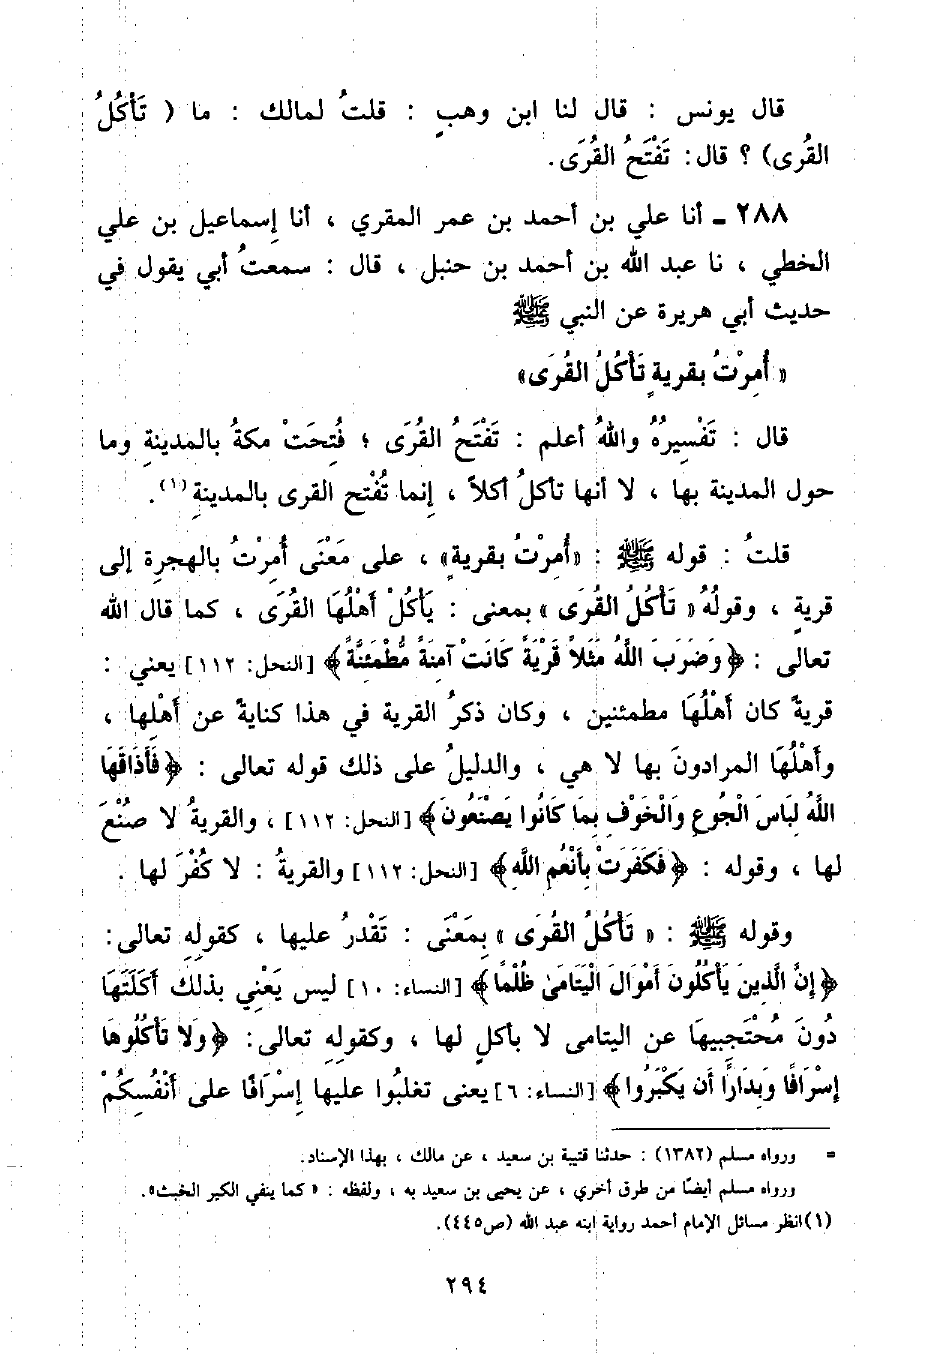 قال يونس : قال لنا ابن وهبٍ : قلتُ لمالك : ما ( تَأْكُلُ
القُرى) ؟ قال: تَفْتَحُ القُرَى.
٢٨٨ ـ أنا علي بن أحمد بن عمر المقري ، أنا إسماعيل بن علي
الخطي ، نا عبد الله بن أحمد بن حنبل ، قال : سمعتُ أبي يقول في
حديث أبي هريرة عن النبي ﷺ
« أُمِرْتُ بقريةٍ تَأْكُلُ القُرَى»
قال : تَفْسِيرُهُ واللهُ أعلم : تَفْتَحُ القُرَى ؛ فُتِحَتْ مكةُ بالمدينةِ وما
حول المدينة بها ، لا أنها تأكلُ أكلاً ، إنما تُفْتح القرى بالمدينةِ(١).
قلتُ : قوله ﷺ : «أُمِرْتُ بقريةٍ» ، على مَعْنَى أُمِرْتُ بالهجرةِ إلى
قريةٍ ، وقولُهُ « تَأْكُلُ القُرَى » بمعنى : يَأْكُلْ أَهْلُهَا القُرَى ، كما قال الله
تعالى : ﴿وَضَرَبَ اللَّهُ مَثَلاً قَرْيَةً كَانَتْ آمِنَةً مُّطْمَئِنَّةً﴾ [النحل: ١١٢] يعني :
قريةً كان أَهْلُهَا مطمئنين ، وكان ذكرُ القرية في هذا كنايةً عن أَهْلِها ،
وأَهْلُهَا المرادونَ بها لا هي ، والدليلُ على ذلك قوله تعالى : ﴿فَأَذَاقَهَا
اللَّهُ لِبَاسَ الْجُوعِ وَالْخَوْفِ بِمَا كَانُوا يَصْنَعُونَ﴾ [النحل: ١١٢] ، والقريةُ لا صُنْعَ
لها ، وقوله : ﴿فَكَفَرَتْ بِأَنْعُمِ اللَّهِ﴾ [النحل: ١١٢] والقريةُ : لا كُفْرَ لها .
وقوله ﷺ : « تَأْكُلُ القُرَى » بِمَعْنَى : تَقْدرُ عليها ، كقولهِ تعالى:
﴿إِنَّ الَّذِينَ يَأْكُلُونَ أَمْوَالَ الْيَتَامَىٰ ظُلْمًا﴾ [النساء: ١٠] ليس يَعْنِي بذلك أَكَلَتَهَا
دُونَ مُحْتَجِبِيهَا عن اليتامى لا بأكلٍ لها ، وكقولهِ تعالى: ﴿وَلَا تَأْكُلُوهَا
إِسْرَافًا وَبِدَارًا أَن يَكْبَرُوا﴾ [النساء: ٦] يعنى تغلبُوا عليها إِسْرَافًا على أَنْفُسِكُمْ
= ورواه مسلم (١٣٨٢) : حدثنا قتيبة بن سعيد ، عن مالك ، بهذا الإسناد.
ورواه مسلم أيضًا من طرق أخري ، عن يحيى بن سعيد به ، ولفظه : « كما ينفي الكير الخبث».
(١) انظر مسائل الإمام أحمد رواية ابنه عبد الله (ص٤٤٥).
٢٩٤